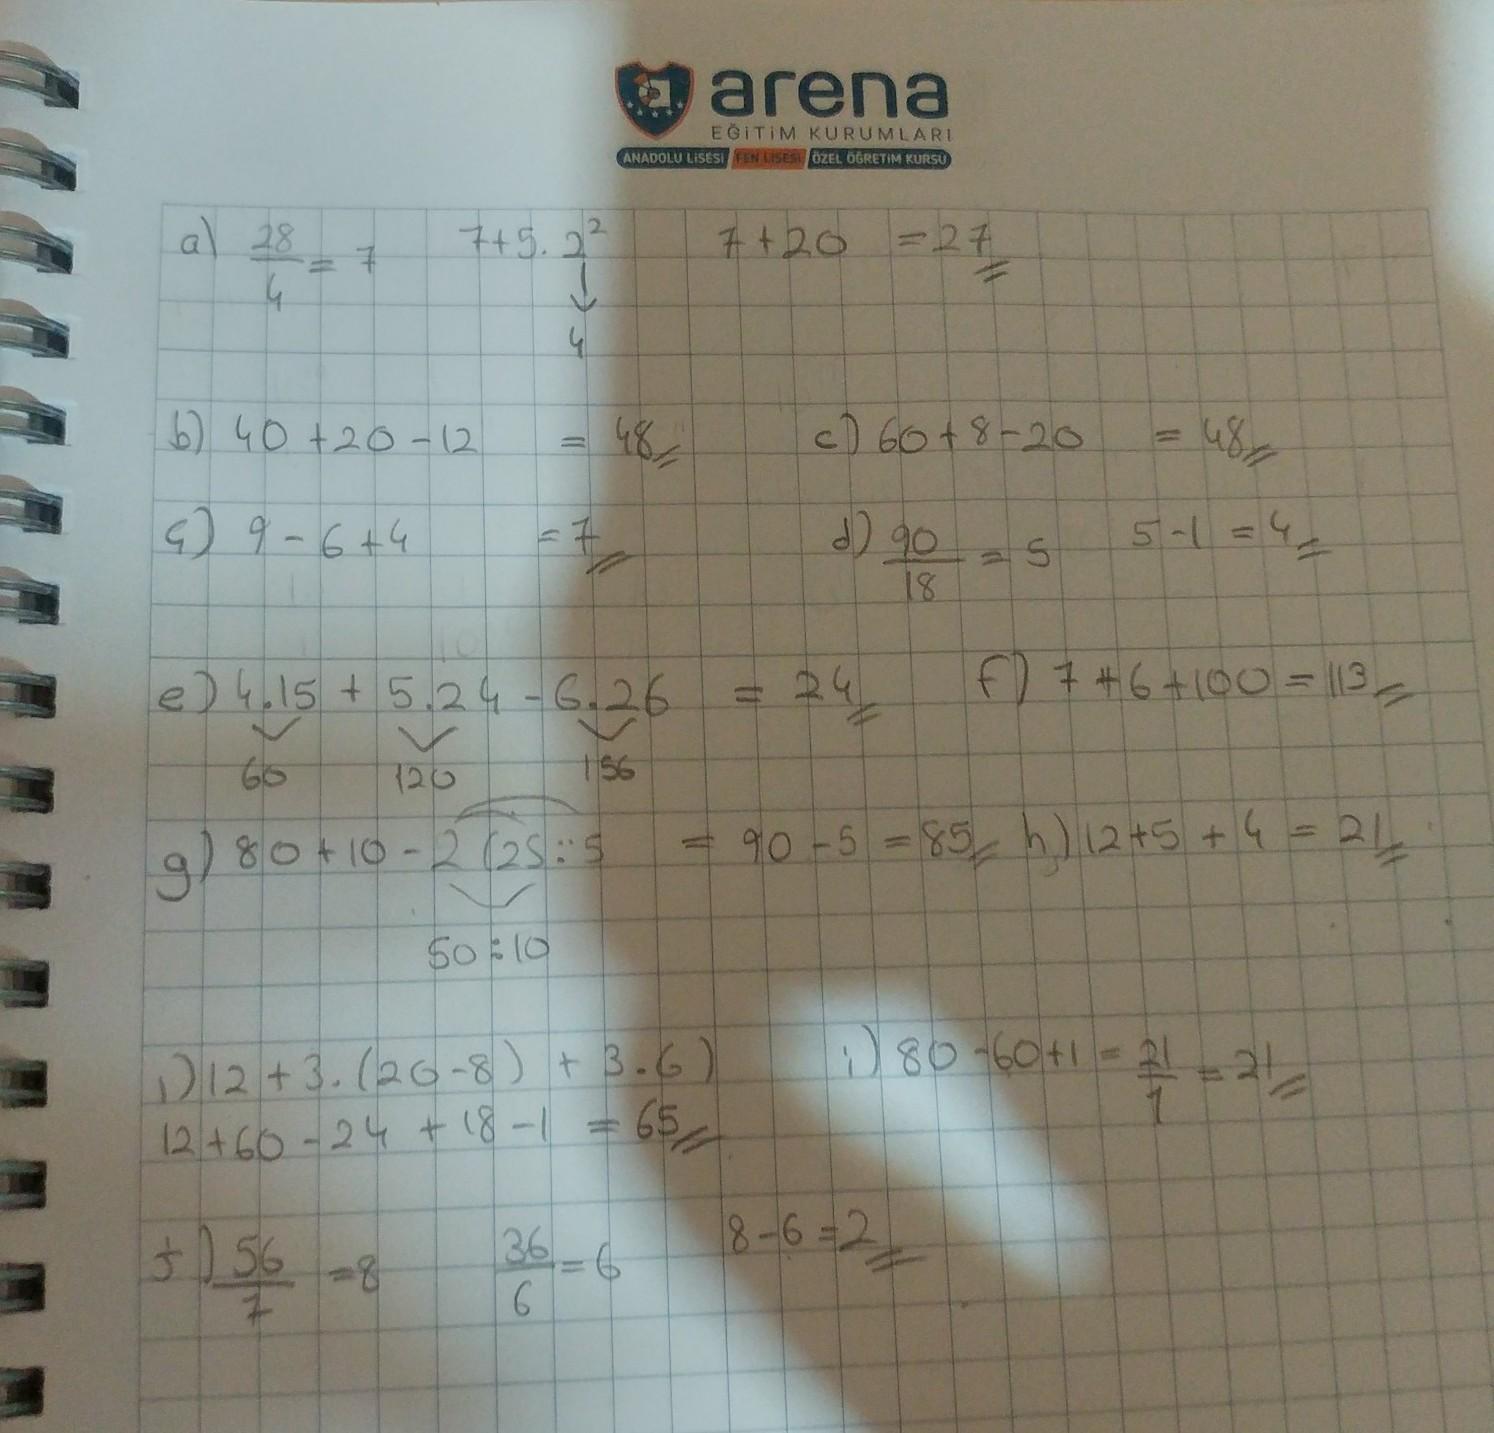 arena
EĞİTİM KURUMLARI
ANADOLU LİSESİ FEN LİSESİ ÖZEL ÖĞRETİM KURSU
a) 28/4 = 7 7+5.2² 7+20 =27
4
b) 40+20-12 = 48 c) 60+8-20 = 48
ç) 9-6+4 =7 d) 90/18 = 5 5-1 = 4
e) 4.15 + 5.24 - 6.26 = 24 f) 7+6+100 = 113
60 120 156
g) 80+10-2(25:5 = 90-5 = 85 h) 12+5+4 = 21
50:10
ı) 12+3.(20-8) + 3.6) i) 80-60+1 = 21/1 = 21
12+60-24+18-1 = 65
j) 56/7 =8 36/6 = 6 8-6=2